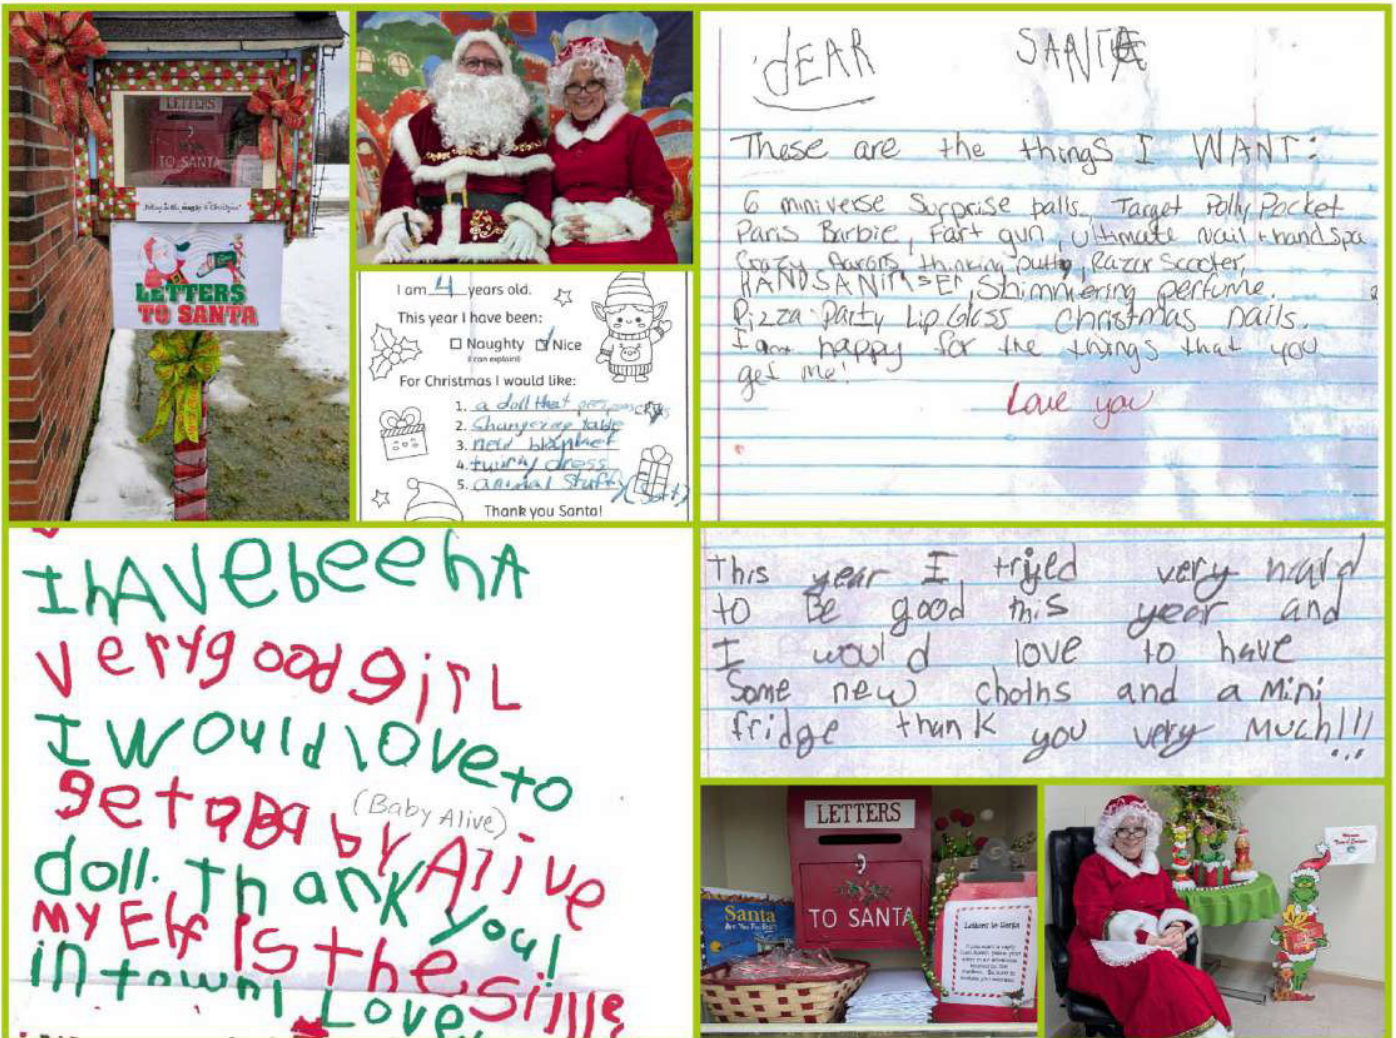 LETTERS
TO SANTA
LETTERS
TO SANTA
I am 4 years old.
This year I have been:
Naughty Nice
(I can explain)
For Christmas I would like:
1. a doll that
2.
3. blanket
4. dress
5. animal stuffy
Thank you Santa!
dEAR SANTA
These are the things I WANT:
6 miniverse Surprise balls, Target Polly Pocket
Paris Barbie, Fart gun, Ultimate nail + hand spa
Crazy Aarons thinking putty, Razor Scooter,
Shimmering perfume.
Pizza Party Lip Gloss Christmas nails.
I am happy for the things that you
get me!
Love you
I hAVe beeh A
Very good girL
I Would love to
get a BaBy Alive
(Baby Alive)
doll. Thank you!
MY Elf Is the sille
in town! Love,
This year I tryed very hard
to Be good this year and
I would love to have
Some new choths and a Mini
fridge thank you very Much!!!
LETTERS
TO SANTA
Santa
Letters to Santa